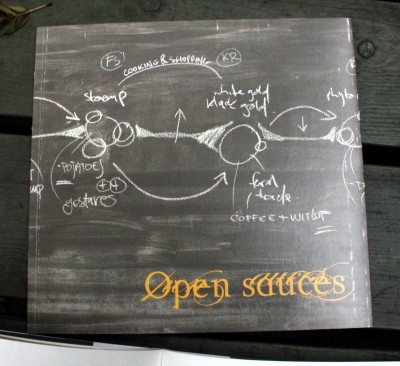 FS
KR
COOKING & SHOPPING
stoemp
white gold
black gold
phyto
• POTATOES
++
gestures
food
trade
COFFEE +
Open sauces